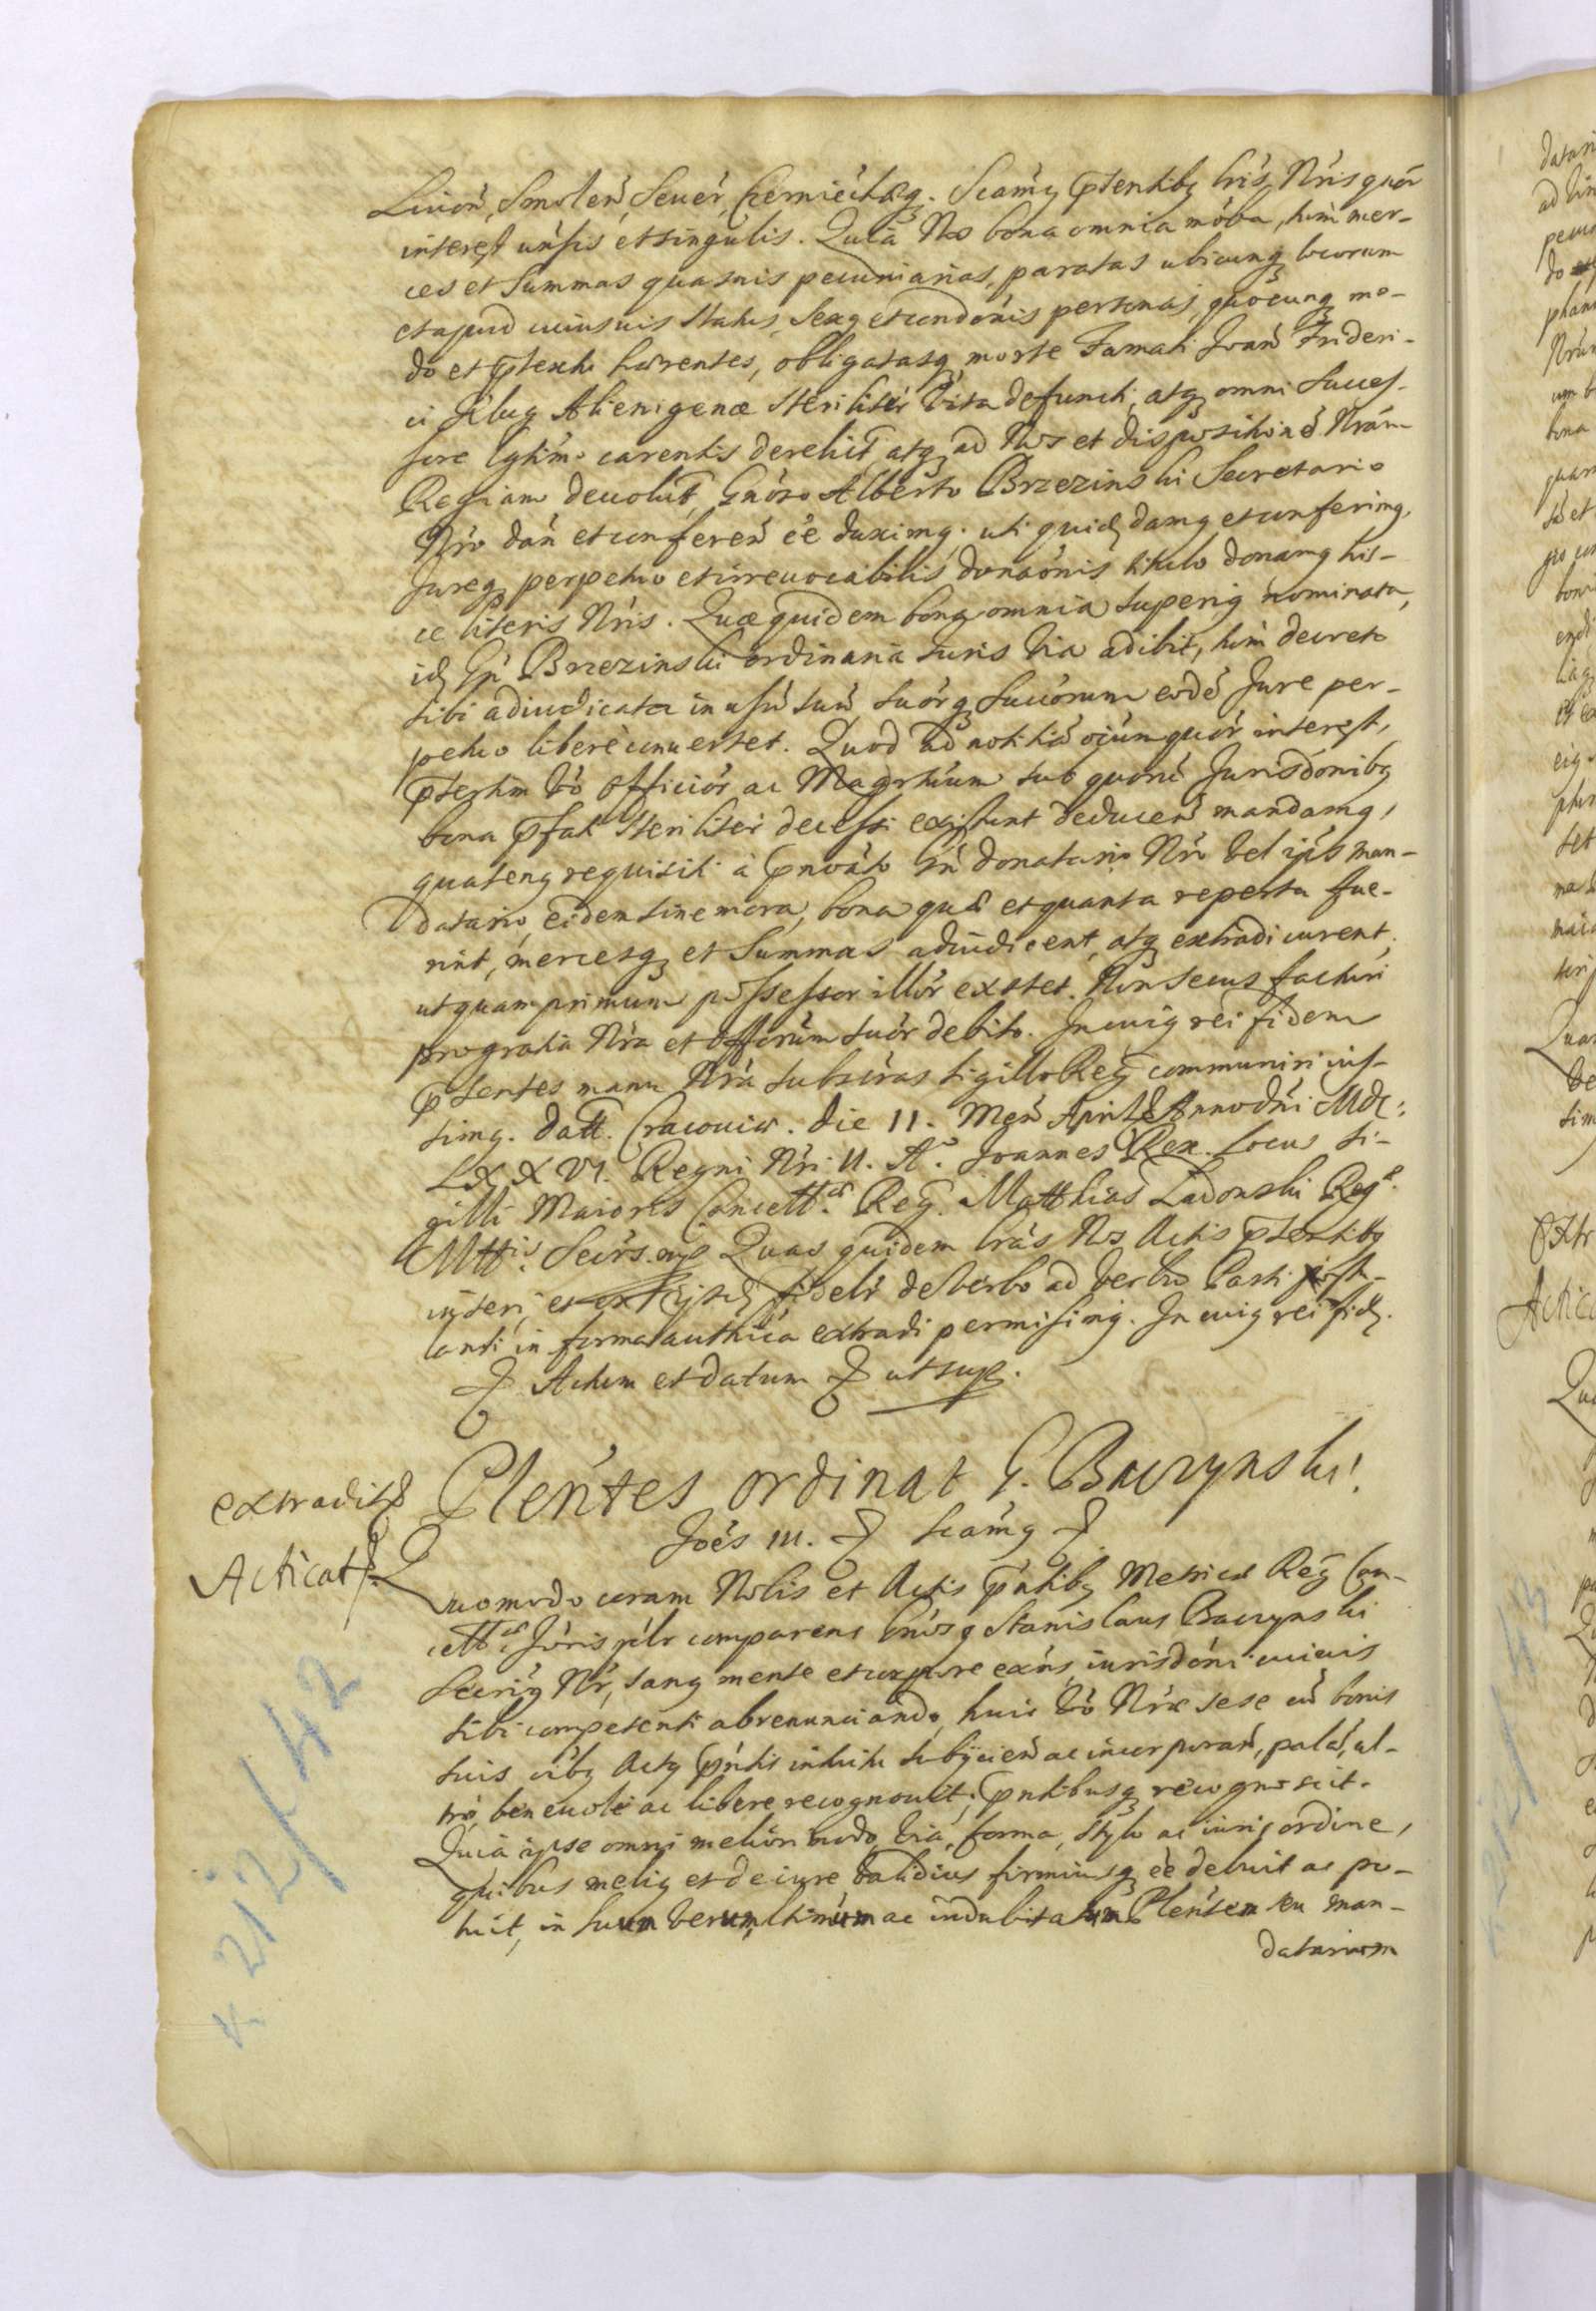 Livon, Smolen, Sever, Czerniechq;. Scamq; psentibq; lris Nris quor
interest unsis et singulis. Quia Nos bona omnia moba, tum mer-
ces et summas quasuis pecuniarias, paratas ubicunq; locorum
et apud cuiusuis status, sexq; et condonis personas, quocunq; mo-
do et ptextu hærentes, obligatasq; morte Famati Joan Frideri-
ci Alienigenæ steriliter vita defuncti, atq; omni succes-
sore lgtimo carentis derelict, atq; ad Nos et dispositione Nram
Regiam deuolut, Gnoso Alberto Brzezinski Secretario
Nro dan et conferen ee duximq; uti quid damq; et conferimq;
Jureq; perpetuo et irreuocabilis donaonis titulo donamq; his-
ce literis Nris. Quæ quidem bona omnia superiq nominata,
id Gn Brzezinski ordinaria iuris via adibit, tum decreto
sibi adiudicata in usu suu suorq; succorum eode Jure per-
petuo libere conuertet. Quod ad notitia oium quor interest,
psertim vo officior ac Magrtuum sub quoru Jurisdonibq;
bona pfati steriliter decessi existunt deducen mandamq;,
quatenq requisiti à pnoato Gn donatario Nro vel ipis man-
datario, eidem sine mora, bona quæ et quanta reperta fue-
rint, mercesq; et summas adiudicent, atq; extradi curent,
ut quam primum possessor illor extet. Non secus facturi
pro gratia Nra et officiorum suor debito. In cuiq rei fidem
psentes manu Nra subscras sigillo Reg communiri ius-
simq;. Datt. Cracouiæ. die 11. Men Aprilis Anno dni MDC:
LXXVI. Regni Nri II. Ao. Joannes Rex. Locus si-
gilli Maioris Cancettæ Reg. Matthias Ladonski Regæ
Mttis. Secrs. mp Quas quidem lras Nos Actis psentibq;
inseri, et ex ijsd fideli de verbo ad verbu Parti postu-
lanti in forma authica extradi permisimq;. In cuiq rei fid.
Actum et datum ut sup.
Plentes ordinat G. Baczynski
extradit
Joes III. scamq;
Acticat.
Quomodo coram Nobis et Actis pntibq; Metricæ Reg Can-
cettæ Joris plr comparens Gnosq Stanislaus Baczynski
Secriq Nr, sanq mente et corpore exns, iurisdoni cuiuis
sibi competenti abrenunciando, huic vo Nræ sese cu bonis
suis oibq; Actq pntis intuitu subijcien ac incorporan, pala, ul-
tro, beneuole ac libere recognouit, pntibusq; recognoscit.
Quia ipse omni meliori modo, via, forma, stylo ac iuris ordine,
quibus meliq et de iure validius firmiusq; ee debuit ac po-
tuit, in suum verum, ltimum ac indubitatum Plentem seu man-
datarium